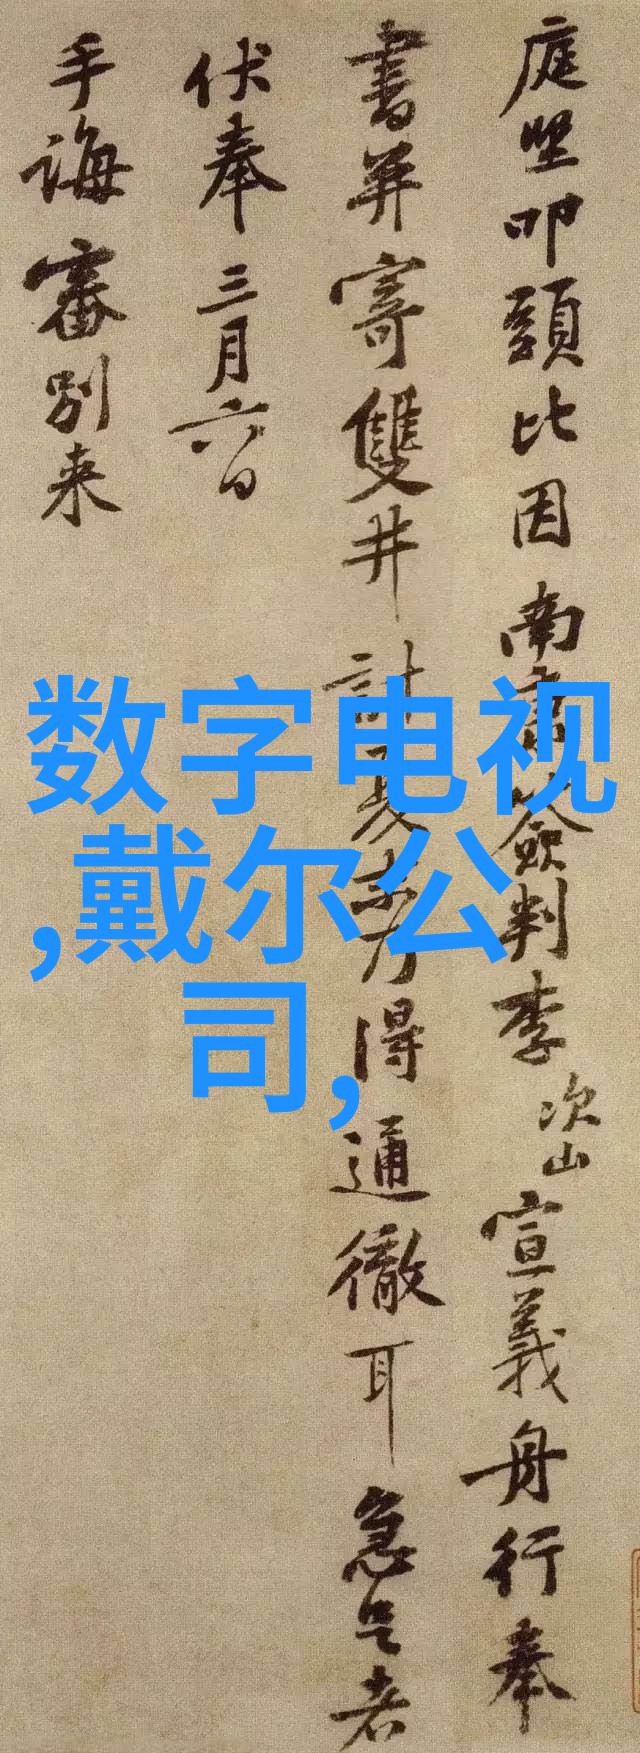 庭堅叩頭比因南康簽判李次山宣義舟行奉
書并寄雙井計夏末方得通徹耳急足者
伏奉三月六日
手誨審別来
数字电视
,戴尔公
司,